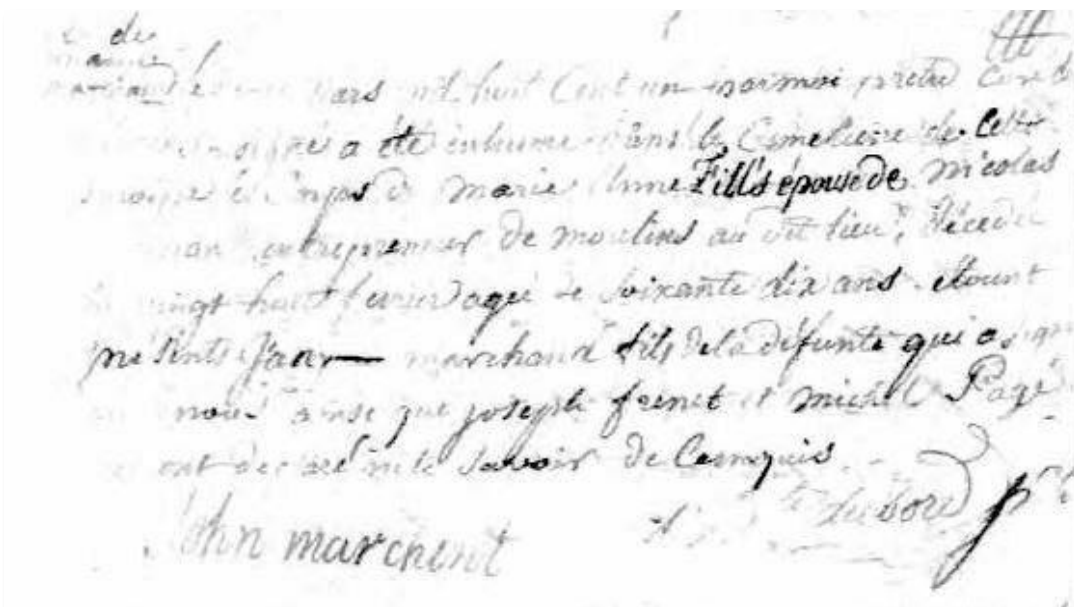 de
mars mil huit Cent un par moi prêtre Curé de
a été inhumé dans le Cimetiere de Cette
le Corps de marie Anne Fill's épouse de Nicolas
entrepreneur de moulins au dit lieu, décedé
vingt huit fevrier agé de Soixante dix ans. étount
présents Jean marchand fils de la défunte qui a
nous ainsi que joseph frenet et michel Pagé
ont declaré ne le Savoir de Ce enquis
John marchent
dubord ptre